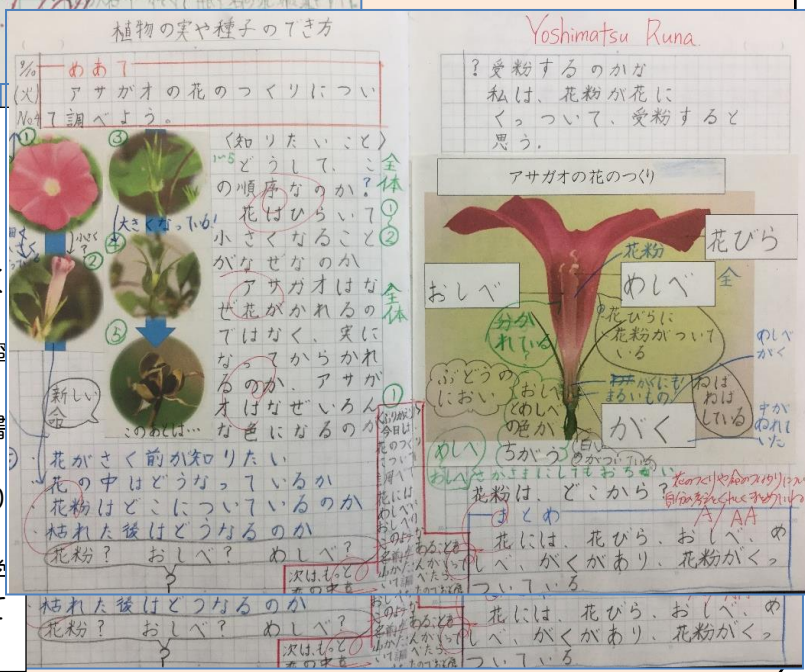 植物の実や種子のでき方
9/10
(火)
No.4
めあて
アサガオの花のつくりについ
て調べよう。
①
③
大きくなっている!
小さく?
②
⑤
このあとは…
新しい
命
〈知りたいこと〉
どうして、こ
の順序なのか?
花はひらいて
小さくなること
がなぜなのか
アサガオはな
ぜ花がかれるの
ではなく、実に
なってからかれ
るのか、アサガ
オはなぜいろん
な色になるのか
全体
①
②
全体
①
花がさく前が知りたい
花の中はどうなっているか
花粉はどこについているのか
枯れた後はどうなるのか
花粉? おしべ? めしべ?
?
次は、もっと
Yoshimatsu Runa
? 受粉するのかな
私は、花粉が花に
くっついて、受粉すると
思う。
アサガオの花のつくり
花びら
花粉
おしべ
めしべ
全
分か
れている?
花びらに
花粉がついて
いる
めしべ
がく
ぶどうの
におい
おしべ
とめしべ
の色が
ちがう
がくにも
まるいもの!
ねば
ねば
している
がく
中が
ぬれて
いた
めしべ
おしべ
さかさまにしてもおちない
花粉は、どこから?
A/AA
まとめ
花には、花びら、おしべ、め
しべ、がくがあり、花粉がくっ
ついている
枯れた後はどうなるのか
花粉? おしべ? めしべ?
?
次は、もっと
花には、花びら、おしべ、め
しべ、がくがあり、花粉がくっ
ついている